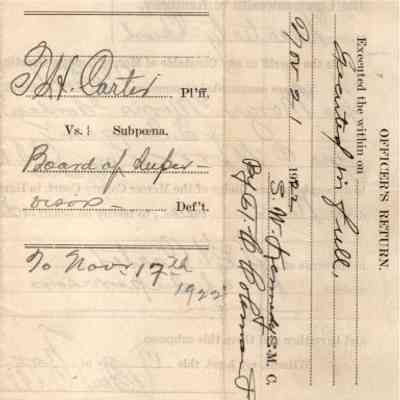 T. H. Carter Pl'ff.
Vs. } Subpœna.
Board of Super-
visors Def't.
To Nov. 17th
1922
OFFICER'S RETURN.
Executed the within on
Executed in full,
Nov 21 1922
S. W. Kennedy S. M. C.
By